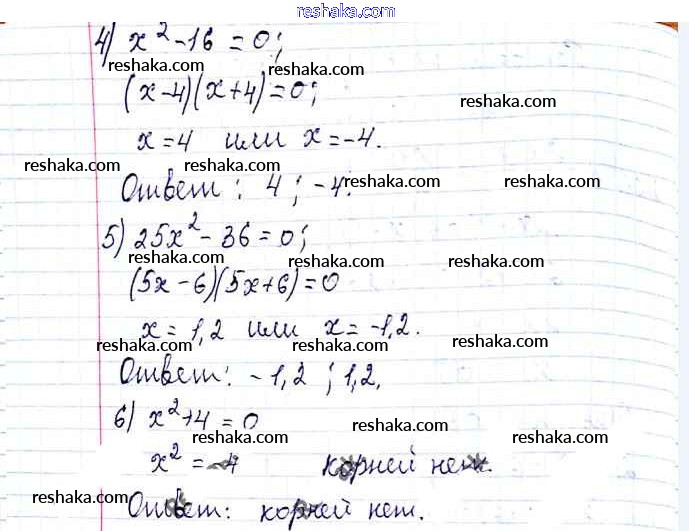 reshaka.com
4) x² - 16 = 0;
reshaka.com
reshaka.com
(x-4)(x+4) = 0;
reshaka.com
x = 4 или x = -4.
reshaka.com reshaka.com
Ответ: 4; -4.
reshaka.com reshaka.com
5) 25x² - 36 = 0;
reshaka.com reshaka.com reshaka.com
(5x - 6)(5x + 6) = 0
reshaka.com
x = 1,2 или x = -1,2.
reshaka.com reshaka.com
Ответ: -1,2; 1,2.
reshaka.com
6) x² + 4 = 0
reshaka.com reshaka.com
reshaka.com
x² = -4 корней нет.
reshaka.com reshaka.com
Ответ: корней нет.
reshaka.com